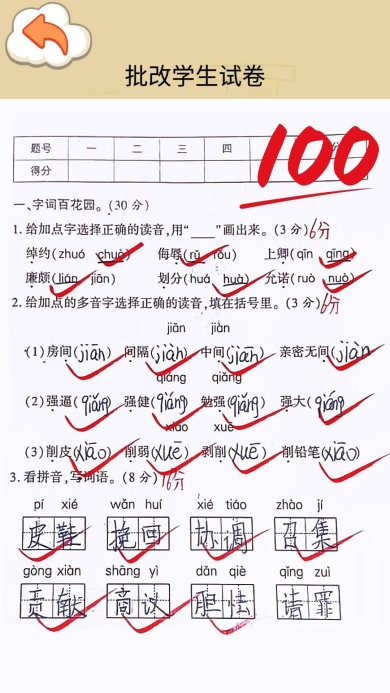 批改学生试卷
题号 一 二 三 四 分
得分
100
一、字词百花园。(30 分)
1. 给加点字选择正确的读音,用“___”画出来。(3 分) 6分
绰约(zhuó chuò) 侮辱(rǔ rǒu) 上卿(qīn qīng)
廉颇(lián jiān) 划分(huá huà) 允诺(ruò nuò)
2. 给加点的多音字选择正确的读音,填在括号里。(3 分) 6分
jiān jiàn
(1) 房间(jiān) 间隔(jiàn) 中间(jiān) 亲密无间(jiàn)
qiáng qiǎng
(2) 强逼(qiǎng) 强健(qiáng) 勉强(qiǎng) 强大(qiáng)
xiāo xuē
(3) 削皮(xiāo) 削弱(xuē) 剥削(xuē) 削铅笔(xiāo)
3. 看拼音,写词语。(8 分) 16分
pí xié wǎn huí xié tiáo zhào jí
皮鞋 挽回 协调 召集
gòng xiàn shāng yì dǎn qiè qǐng zuì
贡献 商议 胆怯 请罪